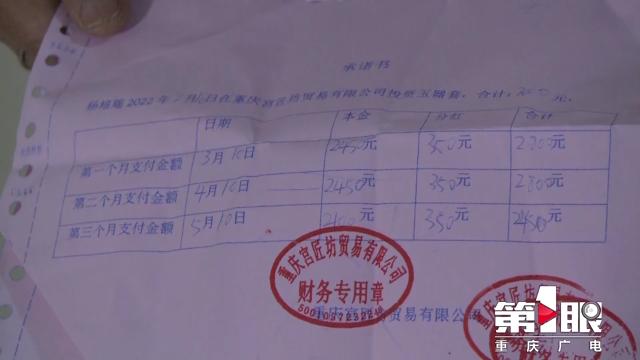 承诺书
2022年 月 日在重庆宫匠坊贸易有限公司投资玉器套,合计: 元.
日期 本金 分红 合计
第一个月支付金额 3月10日 2450元 350元 2800元
第二个月支付金额 4月10日 2450元 350元 2800元
第三个月支付金额 5月10日 2100元 350元 2450元
重庆宫匠坊贸易有限公司
财务专用章
重庆宫匠坊贸易有限公
第1眼
重庆广电